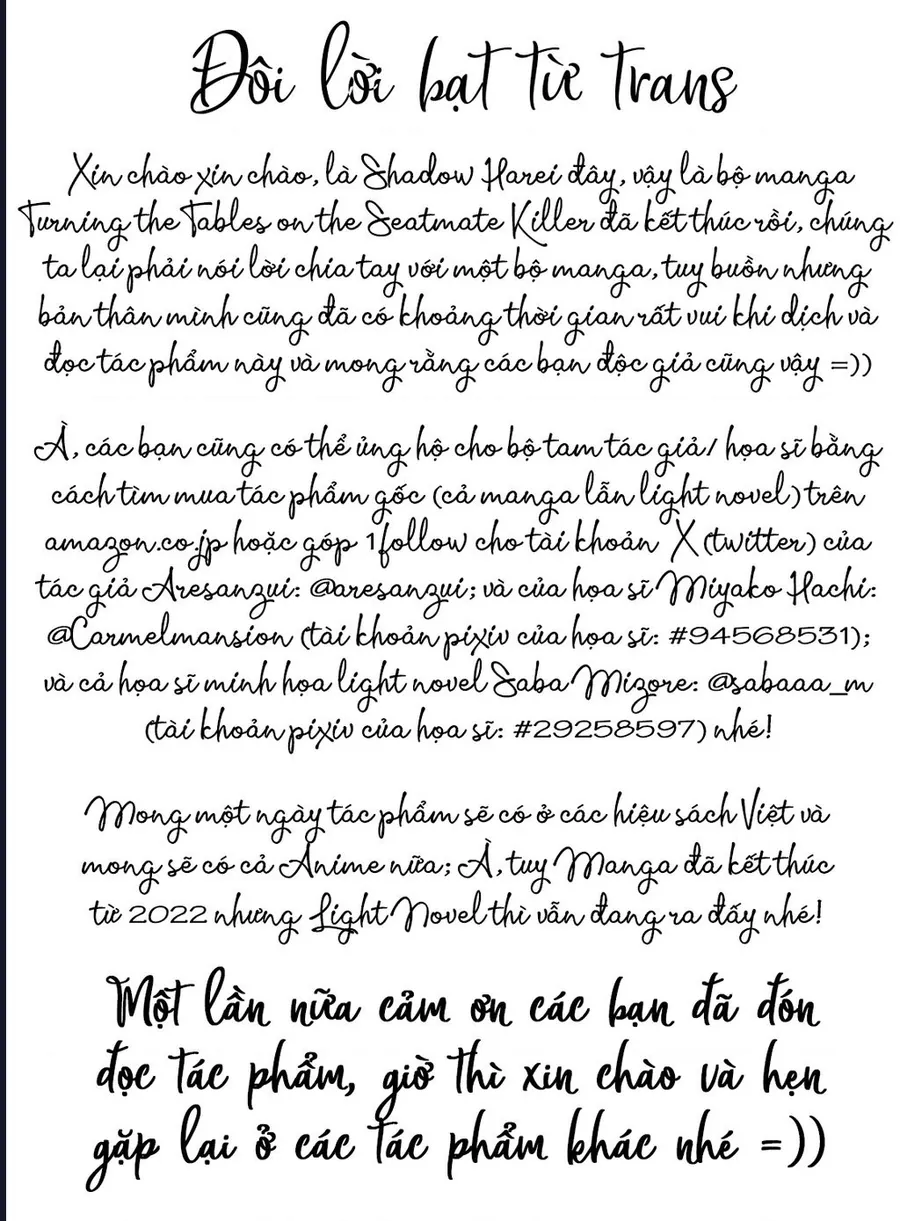 Đôi lời bạt từ trans
Xin chào xin chào, là Shadow Harei đây, vậy là bộ manga
Turning the Tables on the Seatmate Killer đã kết thúc rồi, chúng
ta lại phải nói lời chia tay với một bộ manga, tuy buồn nhưng
bản thân mình cũng đã có khoảng thời gian rất vui khi dịch và
đọc tác phẩm này và mong rằng các bạn độc giả cũng vậy =))
À, các bạn cũng có thể ủng hộ cho bộ tam tác giả/ họa sĩ bằng
cách tìm mua tác phẩm gốc (cả manga lẫn light novel) trên
amazon.co.jp hoặc góp 1 follow cho tài khoản X (twitter) của
tác giả Aresanzui: @aresanzui; và của họa sĩ Miyako Hachi:
@Carmelmansion (tài khoản pixiv của họa sĩ: #94568531);
và cả họa sĩ minh họa light novel Saba Mizore: @sabaaa_m
(tài khoản pixiv của họa sĩ: #29258597) nhé!
Mong một ngày tác phẩm sẽ có ở các hiệu sách Việt và
mong sẽ có cả Anime nữa; À, tuy Manga đã kết thúc
từ 2022 nhưng Light Novel thì vẫn đang ra đấy nhé!
Một lần nữa cảm ơn các bạn đã đón
đọc tác phẩm, giờ thì xin chào và hẹn
gặp lại ở các tác phẩm khác nhé =))